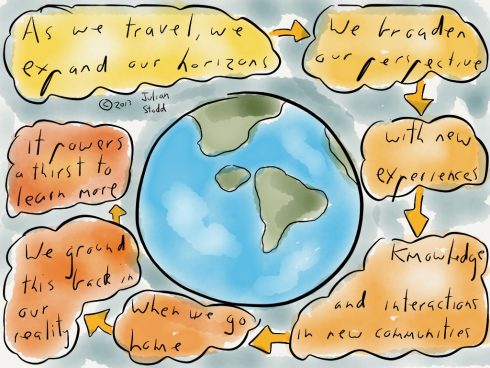 As we travel, we
expand our horizons
We broaden
our perspective
with new
experiences
Knowledge
and interactions
in new communities
When we go
home
We ground
this back in
our
reality
it powers
a thirst to
learn more
© 2013 Julian
Stodd